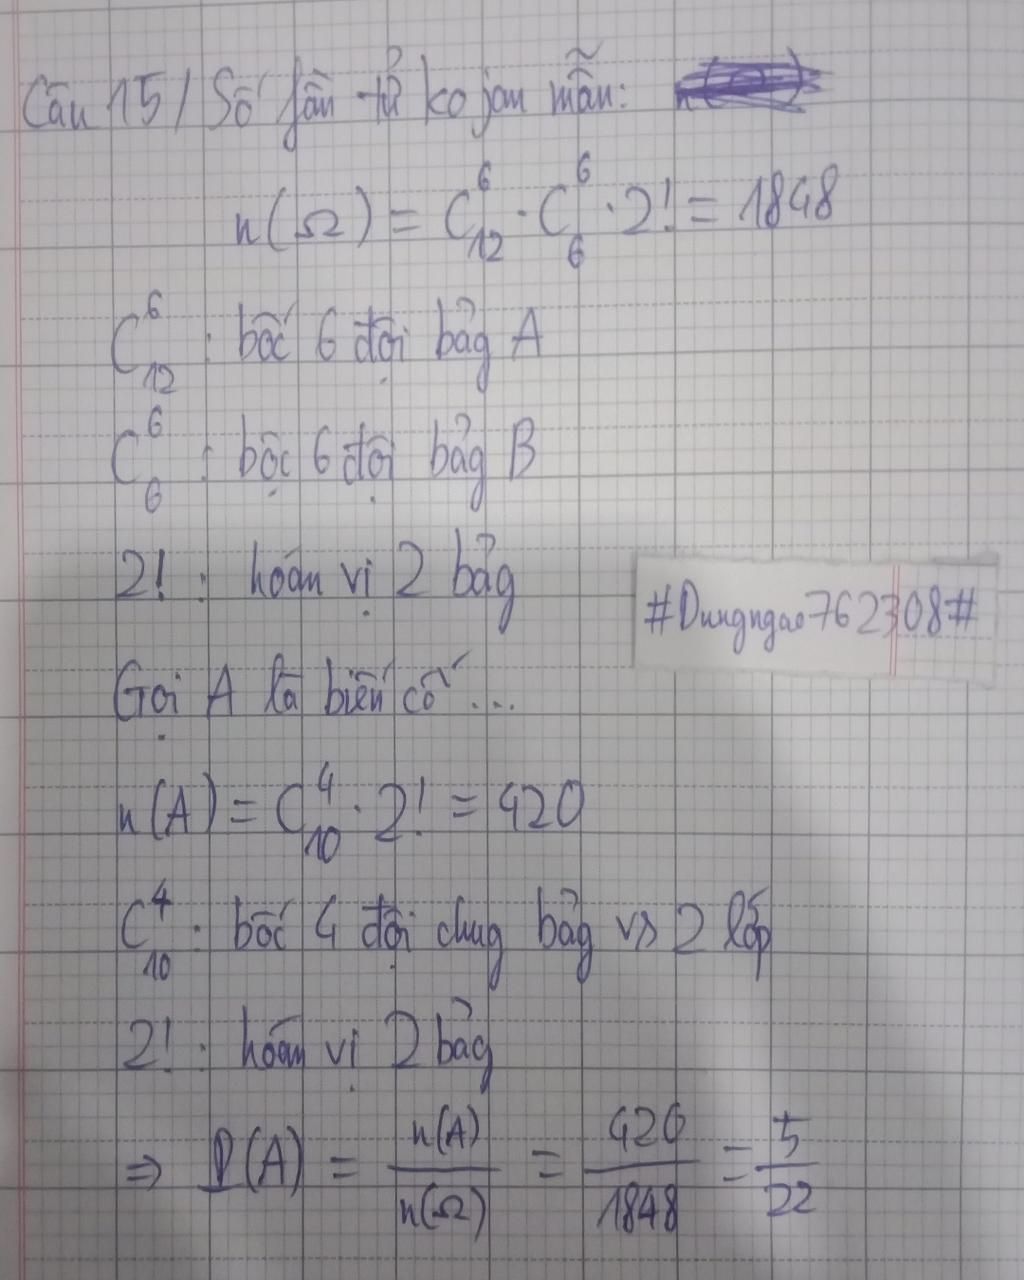 Câu 15/ Số fần tử ko jan mẫu:
n(Ω) = C⁶₁₂ · C⁶₆ · 2! = 1848
C⁶₁₂ : bốc 6 đội bảg A
C⁶₆ : bốc 6 đội bảg B
2! : hoán vị 2 bảg
#Dungngao762308#
Gọi A là biến cố ...
n(A) = C⁴₁₀ · 2! = 420
C⁴₁₀ : bốc 4 đội chug bảg vs 2 lớp
2! : hoán vị 2 bảg
⇒ P(A) = n(A)/n(Ω) = 420/1848 = 5/22